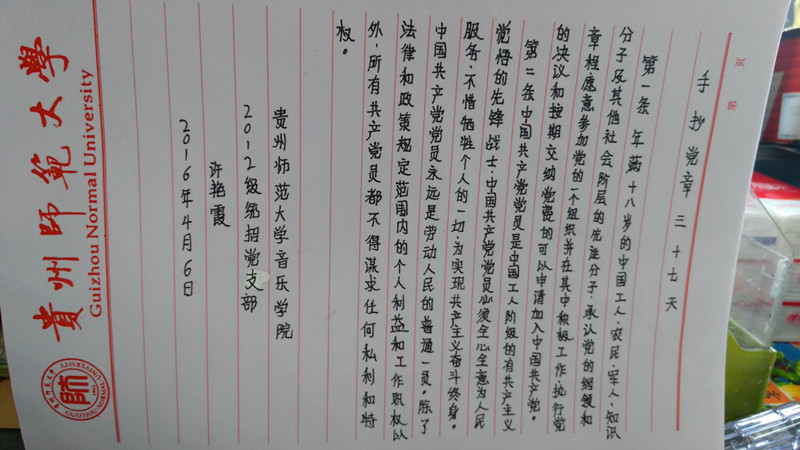 第 页
手抄党章三十七天
第一条 年满十八岁的中国工人、农民、军人、知识
分子及其他社会阶层的先进分子,承认党的纲领和
章程,愿意参加党的一个组织并在其中积极工作、执行党
的决议和按期交纳党费的可以申请加入中国共产党。
第二条 中国共产党党员是中国工人阶级的有共产主义
觉悟的先锋战士。中国共产党党员必须全心全意为人民
服务,不惜牺牲个人的一切,为实现共产主义奋斗终身。
中国共产党党员永远是劳动人民的普通一员。除了
法律和政策规定范围内的个人利益和工作职权以
外,所有共产党员都不得谋求任何私利和特
权。
贵州师范大学音乐学院
2012级统招党支部
许艳霞
2016年4月6日
貴州師範大學
Guizhou Normal University